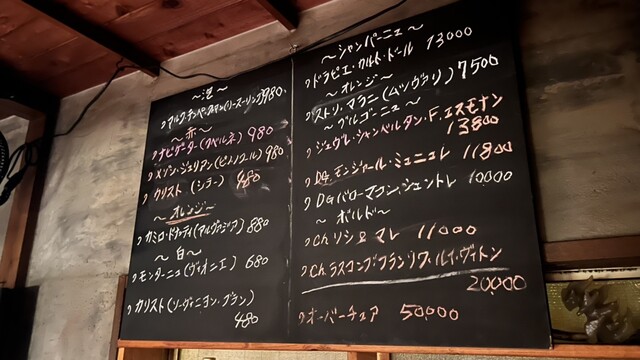 〜泡〜
マルク・テンペ・ゼレンベルグ(リースリング)980
〜赤〜
ナビゲーター(カベルネ)980
メゾン・ジュリアン(ピノノワール)980
クリスト(シラー)480
〜オレンジ〜
カミロ・ドナーティ(マルヴァジア)880
〜白〜
モンターニュ(ヴィオニエ)680
カリスト(ソーヴィニヨン・ブラン)
480
〜シャンパーニュ〜
ドラピエ・クルト・ドール 13000
〜オレンジ〜
ストリ・マラニ(ムツヴァリ)7500
〜ブルゴーニュ〜
ジュヴレ・シャンベルタン・F.エスモナン
13800
DG モンジャール・ミュニュレ 11800
DG バローマコン・シュントレ 10000
〜ボルドー〜
Ch.リシュマレ 11000
Ch.ラスコンブ・フランソワ・ルイ・ヴィトン
20000
オーバーチュア 50000